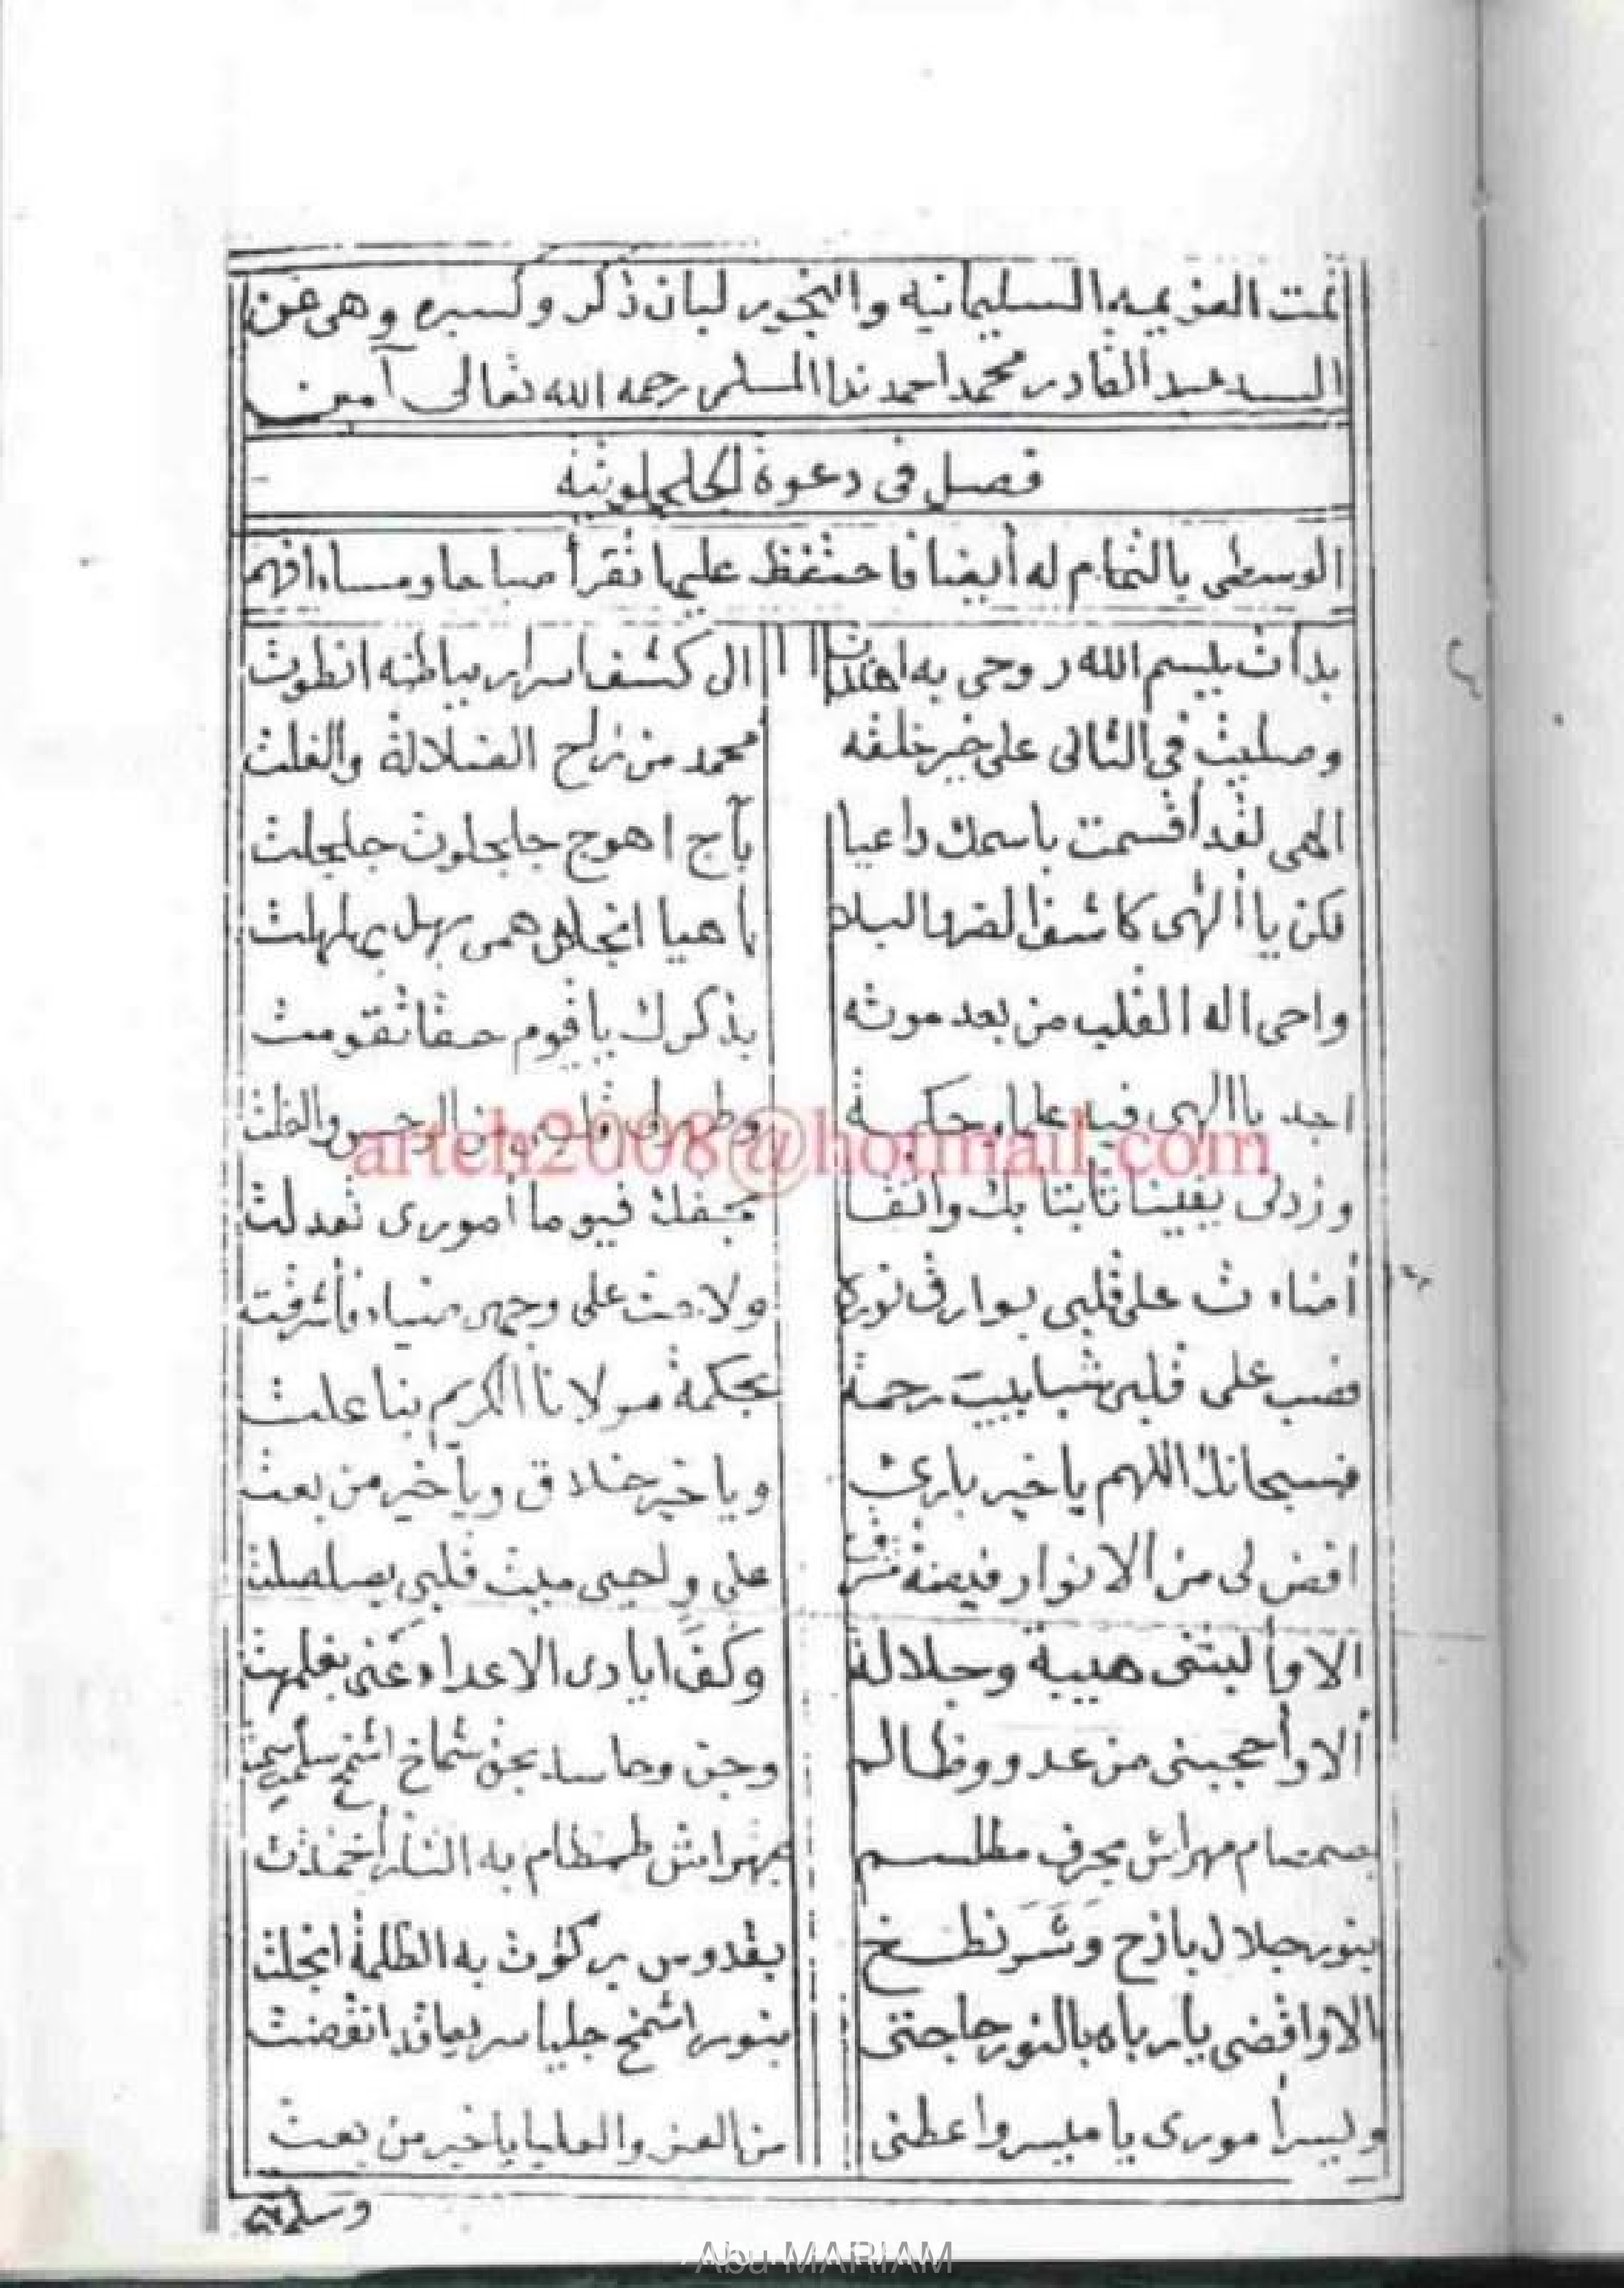 تمت العزيمه السليمانيه والتبخير لبان ذكر وكسبره وهى عن
السيد عبد القادر محمد احمد ندا المسلمى رحمه الله تعالى آمين
فصل فى دعوة الجلجلوتية
الوسطى بالتمام له أيضا فاحتفظ عليها تقرأ صباحا ومساء افهم
بدأت ببسم الله روحى به اهتدت الى كشف اسرار بباطنه انطوت
وصليت في الثانى على خير خلقه محمد من زاح الضلالة والغلت
الهى لقد أقسمت باسمك داعيا بآج اهوج جلجلوت جلجلت
فكن يا ألهى كاشف الضر والبلا هيا همى بهل بهلهلت
واحى اله القلب من بعد موته بذكرك يا قيوم حقا تقومت
اجد يا الهى فيه علما وحكمة وطهر قلبى من الرجس والغلت
وزدنى يقينا ثابتا بك واثقا بحقك قيوما أمورى تعدلت
أضاءت على قلبى بوارق نوره ولاحت على وجهى ضياء فأشرقت
فصب على قلبى شبابيب رحمة بحكمة مولانا الكريم بنا علت
فسبحانك اللهم يا خير بارئ ويا خير خلاق ويا خير من بعث
افض لى من الانوار فيضة على واحيى ميت قلبى بصلصلت
الا وألبسنى هيبة وجلالة وكف ايادى الاعداء عنى بغلمهت
ألا وأحجبنى من عدو وظالم وجن وحاسد بحق شماخ اشمخ
بصمصام مهراش بحرف مطلسم بمهراش طمطام به النار أخمدت
بنور جلال بازح وشرنطخ بقدوس بركوت به الظلمة انجلت
الا واقضى يا رباه بالنور حاجتى بنور اشمخ جليا سريعا قد انقضت
ويسر أمورى يا ميسر واعطنى من العز والعليا يا خير من بعث
arteh2008@hotmail.com
Abu MARIAM